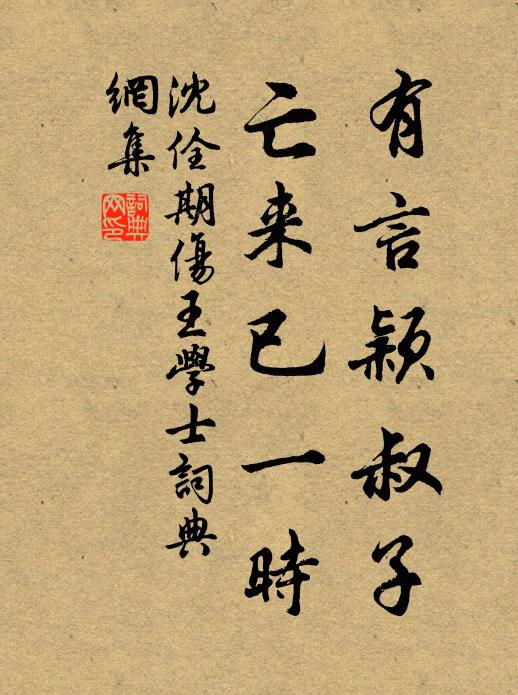 有言穎叔子
亡来已一時
沈佺期傷王學士詞典
網集
詞典網印